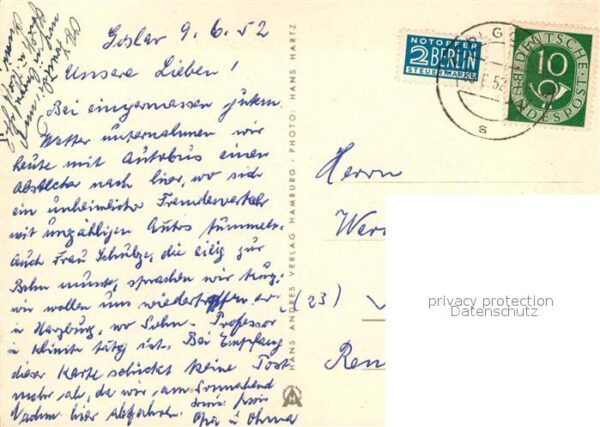 Goslar 9.6.52
Unsere Lieben!
Bei einigermassen gutem
Wetter unternahmen wir
heute mit Autobus einen
Abstecher nach hier, wo sich
ein unheimlicher Fremdenverkehr
mit unzähligen Autos tummelt.
Auch Frau Schulze, die eilig zur
Bahn musste, sprachen wir kurz,
wir wollen uns wiedertreffen
in Harzburg, wo Sohn - Professor
in Klinik tätig ist. Bei Empfang
dieser Karte schickt keine Post
mehr ab, da wir am Sonnabend
Nachm. hier abfahren.
Opa u Ohma
HANS ANDRES VERLAG HAMBURG · PHOTO: HANS HARTZ
NOTOPFER
2 BERLIN
STEUERMARKE
52
s
DEUTSCHE
10
BUNDESPOST
Herrn
Wer
(23)
Ren
privacy protection
Datenschutz